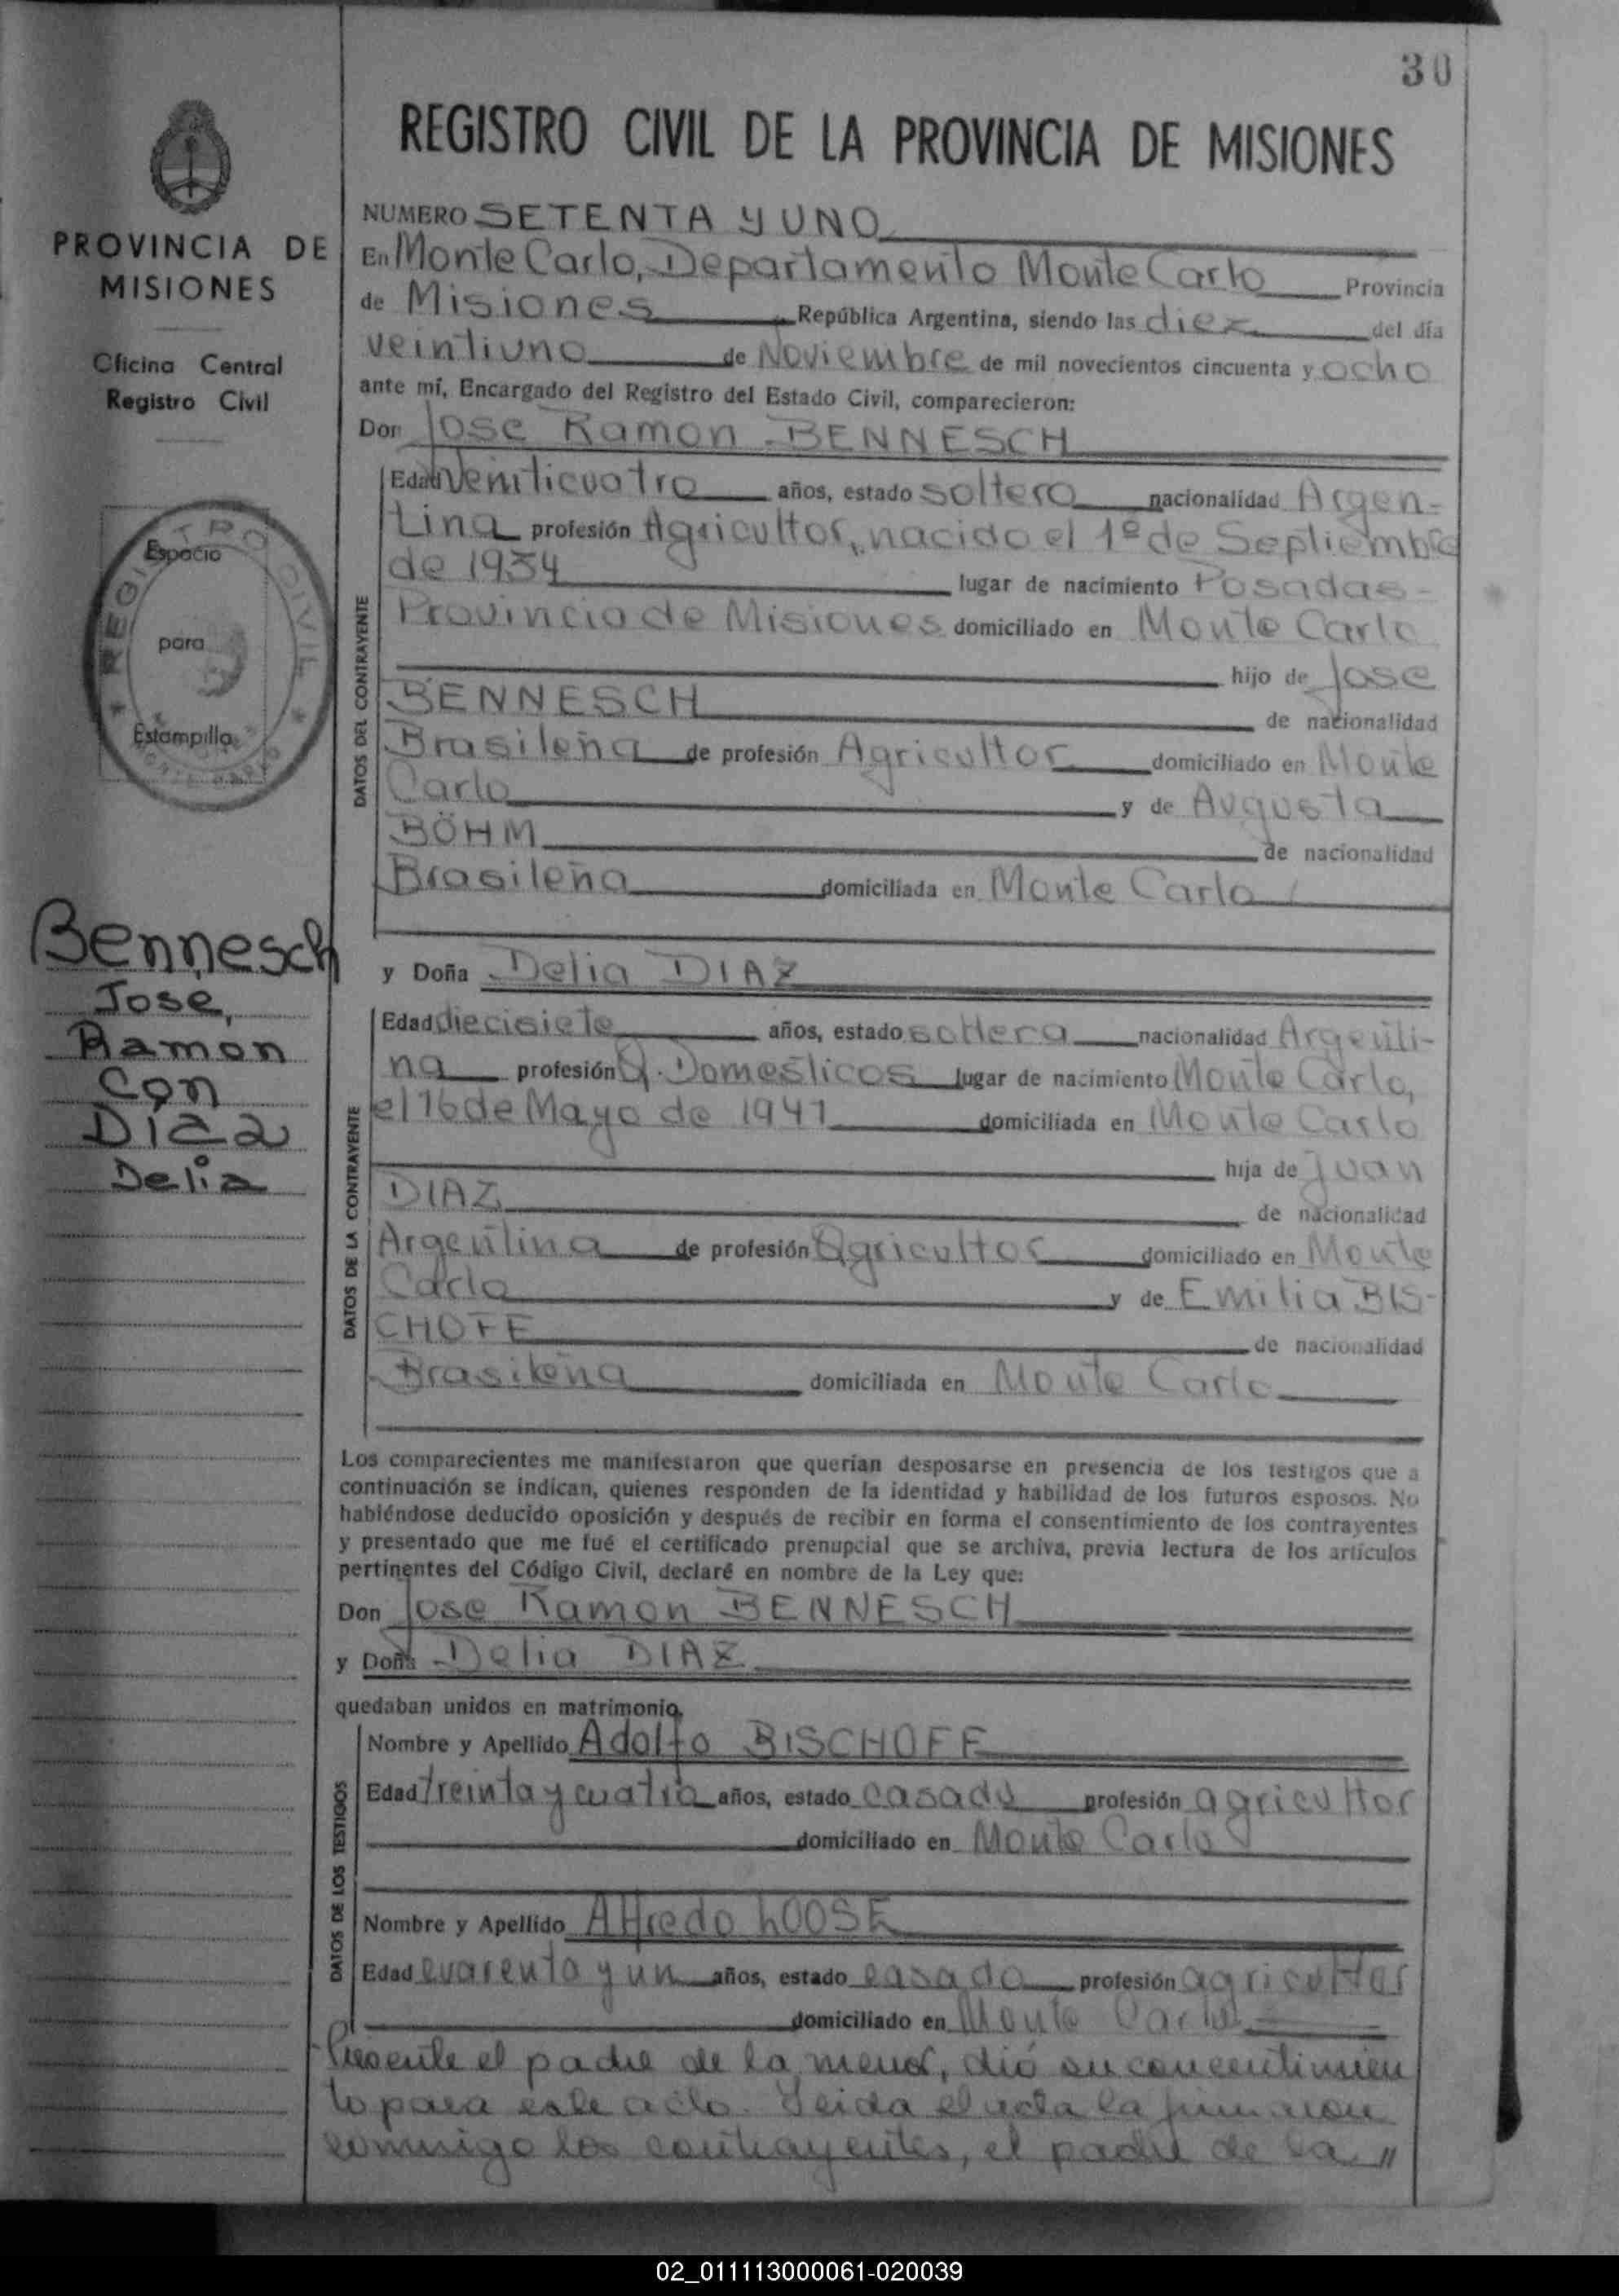 30
REGISTRO CIVIL DE LA PROVINCIA DE MISIONES
PROVINCIA DE
MISIONES
Oficina Central
Registro Civil
REGISTRO CIVIL
Espacio
para
Estampilla
Bennesch
Jose,
Ramon
Con
Diaz
Delia
NUMERO SETENTA Y UNO
En Monte Carlo, Departamento Monte Carlo Provincia
de Misiones República Argentina, siendo las diez del día
veintiuno de Noviembre de mil novecientos cincuenta y ocho
ante mí, Encargado del Registro del Estado Civil, comparecieron:
Don Jose Ramon BENNESCH
DATOS DEL CONTRAYENTE
Edad Veinticuatro años, estado soltero nacionalidad Argen-
tina profesión Agricultor, nacido el 1º de Septiembre
de 1934 lugar de nacimiento Posadas-
Provincia de Misiones domiciliado en Monte Carlo
hijo de Jose
BENNESCH de nacionalidad
Brasileña de profesión Agricultor domiciliado en Monte
Carlo y de Augusta
BÖHM de nacionalidad
Brasileña domiciliada en Monte Carlo
y Doña Delia DIAZ
DATOS DE LA CONTRAYENTE
Edad diecisiete años, estado soltera nacionalidad Argenti-
na profesión Q. Domesticos lugar de nacimiento Monte Carlo,
el 16 de Mayo de 1941 domiciliada en Monte Carlo
hija de Juan
DIAZ de nacionalidad
Argentina de profesión Agricultor domiciliado en Monte
Carlo y de Emilia BIS-
CHOFF de nacionalidad
Brasileña domiciliada en Monte Carlo
Los comparecientes me manifestaron que querían desposarse en presencia de los testigos que a
continuación se indican, quienes responden de la identidad y habilidad de los futuros esposos. No
habiéndose deducido oposición y después de recibir en forma el consentimiento de los contrayentes
y presentado que me fué el certificado prenupcial que se archiva, previa lectura de los artículos
pertinentes del Código Civil, declaré en nombre de la Ley que:
Don Jose Ramon BENNESCH
y Doña Delia DIAZ
quedaban unidos en matrimonio.
DATOS DE LOS TESTIGOS
Nombre y Apellido Adolfo BISCHOFF
Edad treinta y cuatro años, estado casado profesión agricultor
domiciliado en Monte Carlo
Nombre y Apellido Alfredo LOOSE
Edad cuarenta y un años, estado casado profesión agricultor
domiciliado en Monte Carlo
Presente el padre de la menor, dió su concentimien
to para este acto. Leida el acta la firmaron
conmigo los contrayentes, el padre de la "
02_011113000061-020039